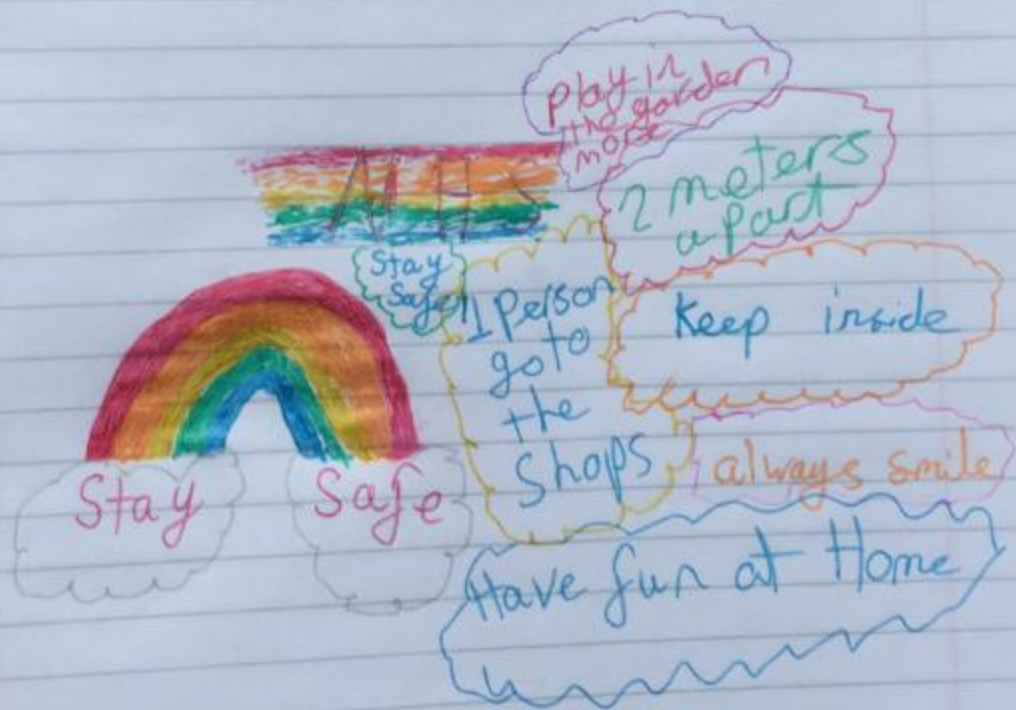 Play in
the garden
more
NHS
2 meters
apart
Stay
Safe
1 Person
go to
the
Shops
Keep inside
Stay Safe
always smile
Have fun at Home